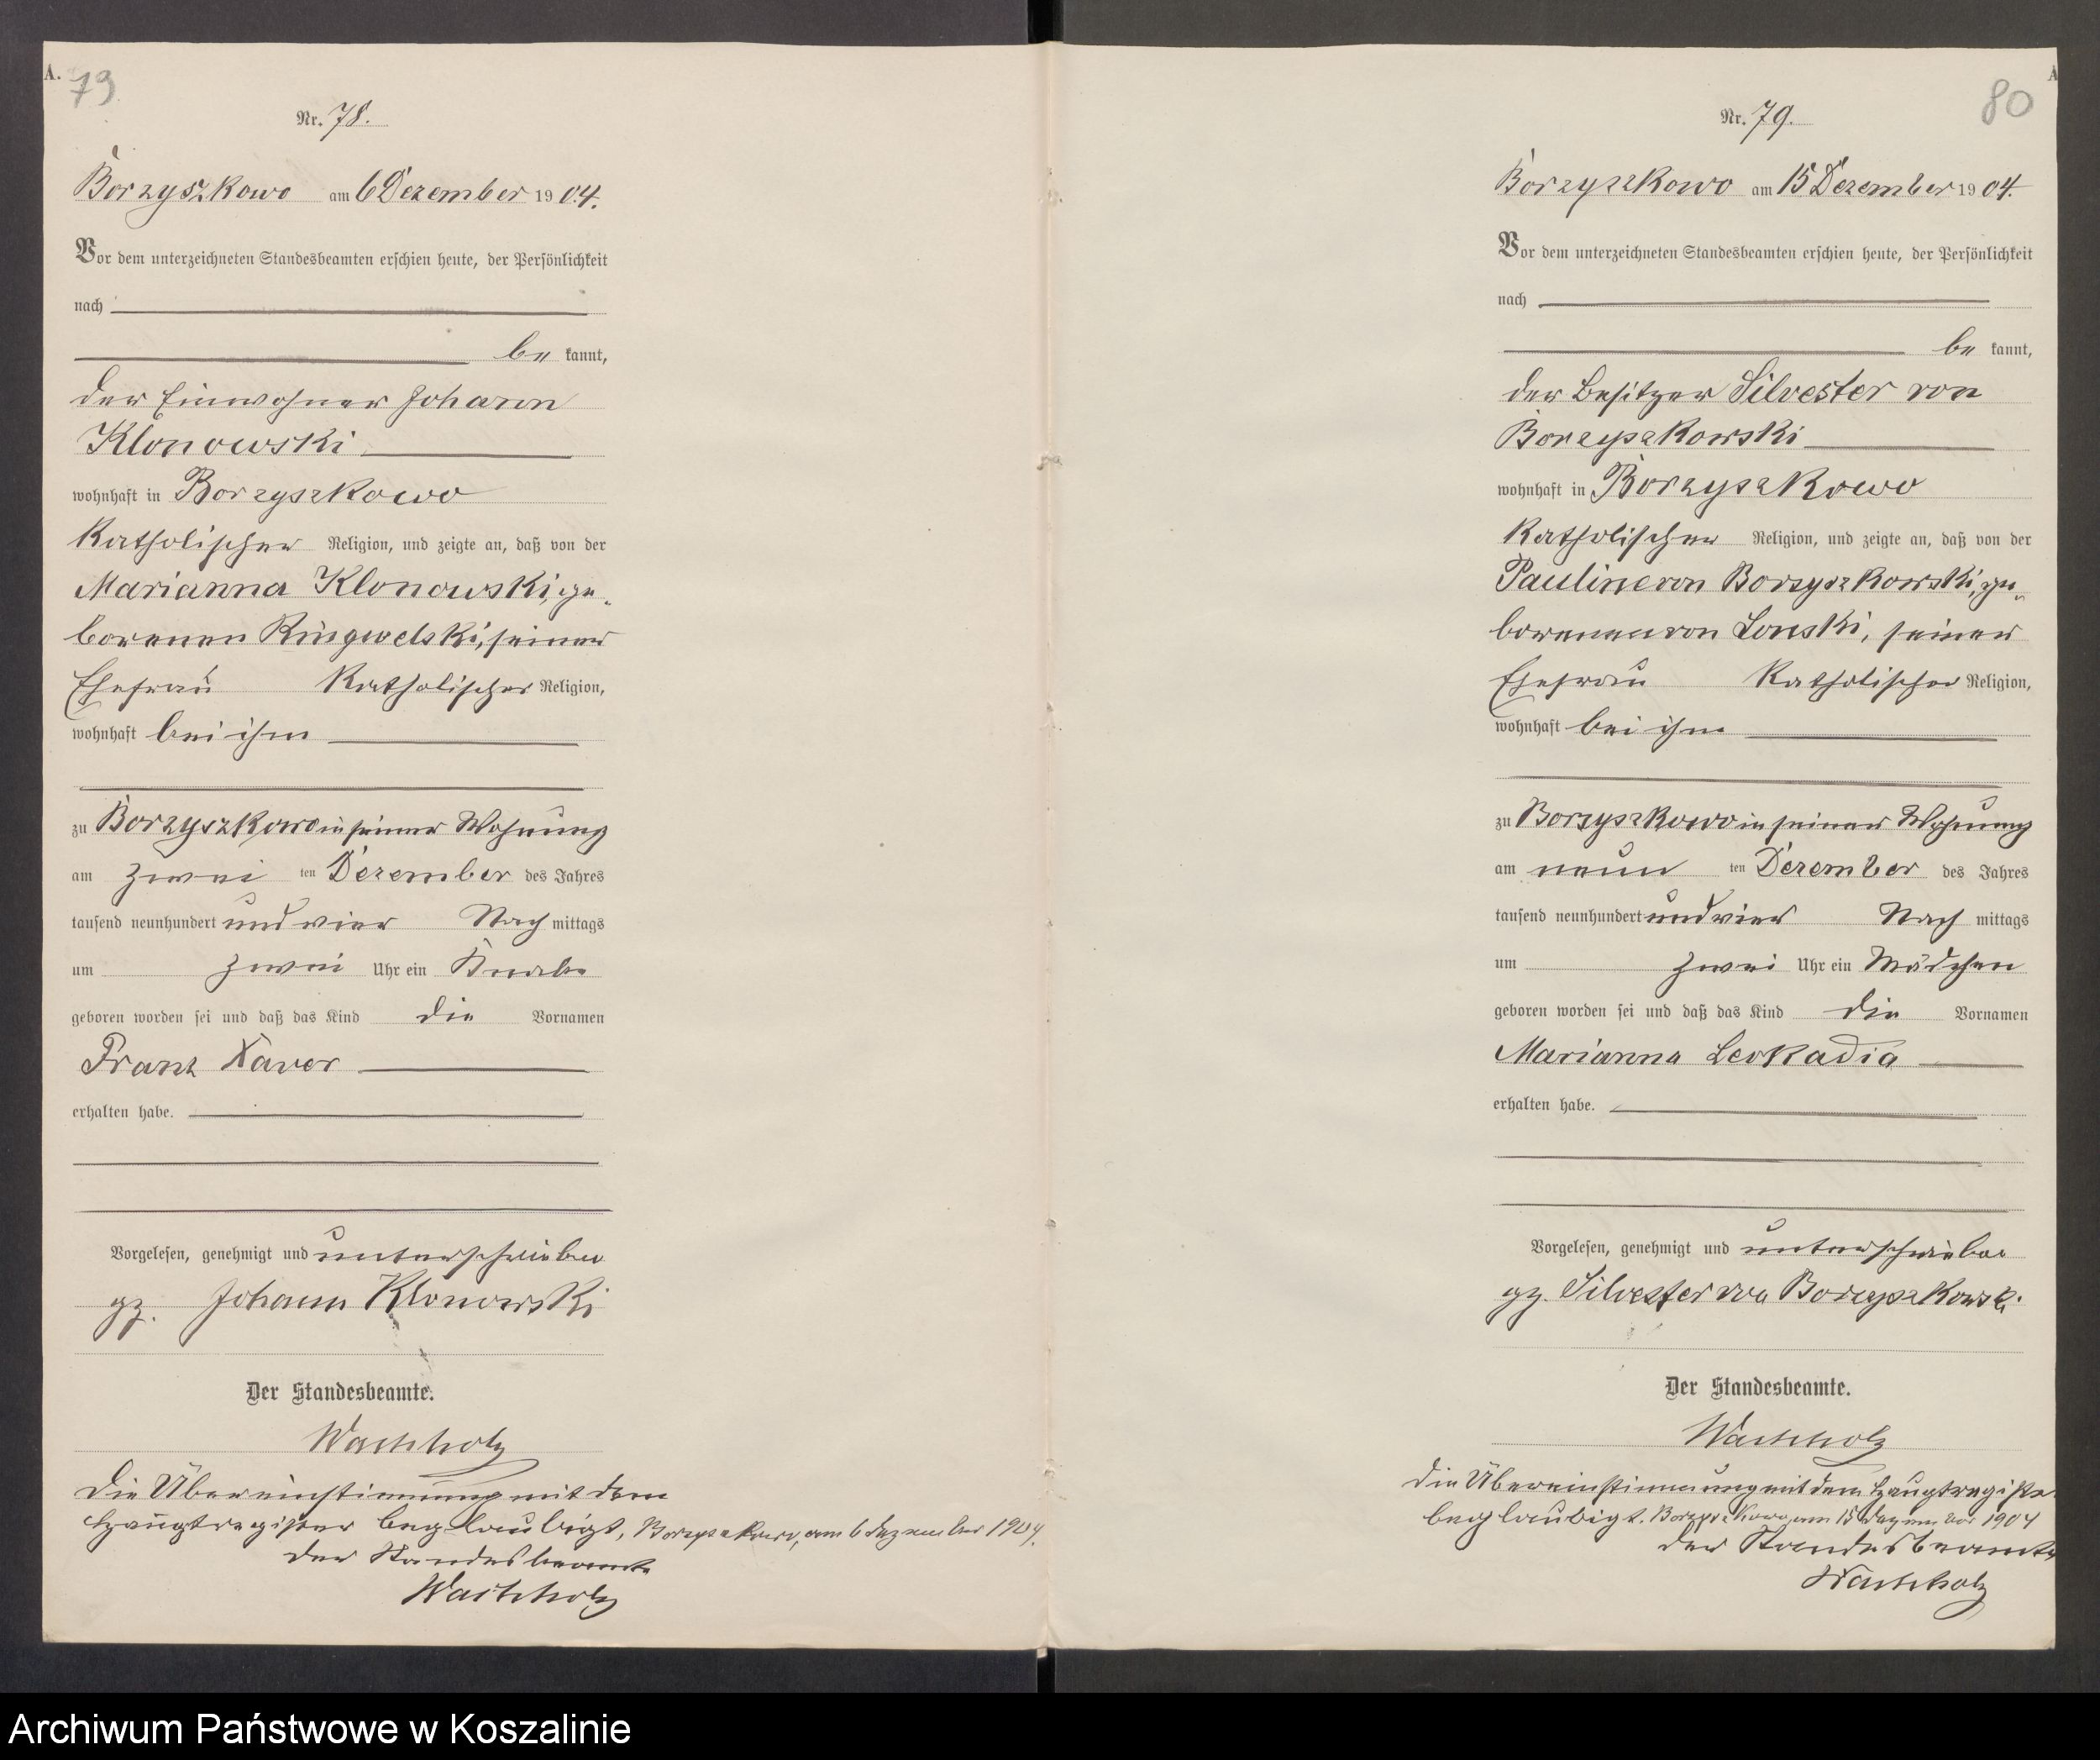 A.
79
Nr. 78.
Borzyszkowo am 6 Dezember 1904.
Vor dem unterzeichneten Standesbeamten erschien heute, der Persönlichkeit
nach
be kannt,
der Einwohner Johann
Klonowski
wohnhaft in Borzyszkowo
katholischer Religion, und zeigte an, daß von der
Marianna Klonowski, ge-
borenen Ringwelski, seiner
Ehefrau katholischer Religion,
wohnhaft bei ihm
zu Borzyszkowo in seiner Wohnung
am zwei ten Dezember des Jahres
tausend neunhundert und vier Nach mittags
um zwei Uhr ein Knabe
geboren worden sei und daß das Kind die Vornamen
Franz Xaver
erhalten habe.
Vorgelesen, genehmigt und unterschrieben
gz. Johann Klonowski
Der Standesbeamte.
Wachholz
Die Übereinstimmung mit dem
Hauptregister beglaubigt, Borzyszkowo, am 6 Dezember 1904.
Der Standesbeamte
Wachholz
A
80
Nr. 79.
Borzyszkowo am 15 Dezember 1904.
Vor dem unterzeichneten Standesbeamten erschien heute, der Persönlichkeit
nach
be kannt,
der Besitzer Silvester von
Borzyszkowski
wohnhaft in Borzyszkowo
katholischer Religion, und zeigte an, daß von der
Pauline von Borzyszkowski, ge-
borenen von Lonski, seiner
Ehefrau katholischer Religion,
wohnhaft bei ihm
zu Borzyszkowo in seiner Wohnung
am neun ten Dezember des Jahres
tausend neunhundert und vier Nach mittags
um zwei Uhr ein Mädchen
geboren worden sei und daß das Kind die Vornamen
Marianna Leokadia
erhalten habe.
Vorgelesen, genehmigt und unterschrieben
gz. Silvester von Borzyszkowski
Der Standesbeamte.
Wachholz
Die Übereinstimmung mit dem Hauptregister
beglaubigt. Borzyszkowo, am 15 Dezember 1904
Der Standesbeamte
Wachholz
Archiwum Państwowe w Koszalinie